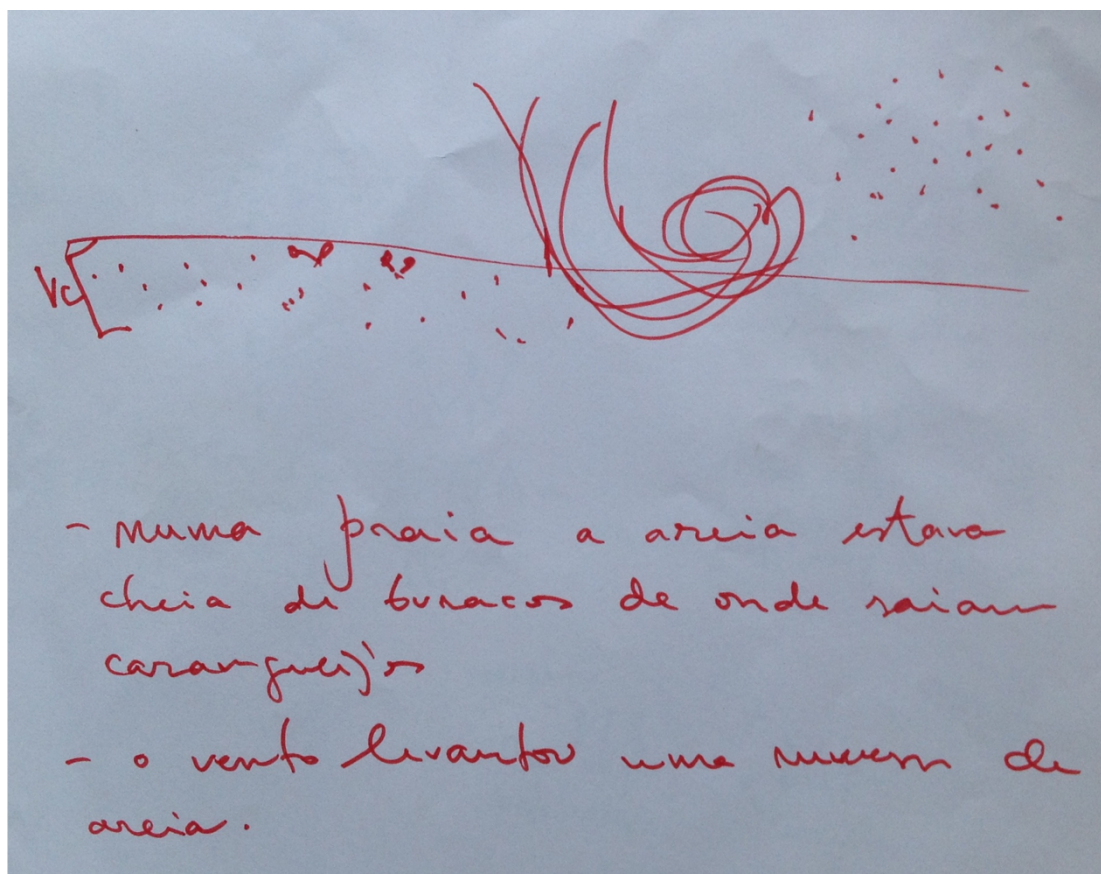 Vc
- numa praia a areia estava
cheia de buracos de onde saiam
carangueijos
- o vento levantou uma nuvem de
areia.